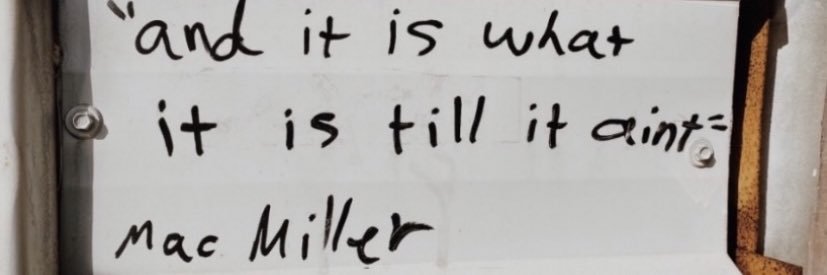 "and it is what
it is till it aint"
Mac Miller